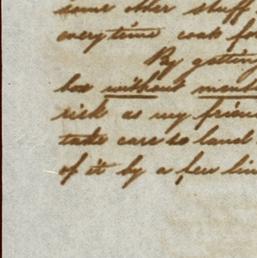 some other stuff
everytime cook fo
By getting
box without ment
risk as my frien
take care to land
of it by a few lin